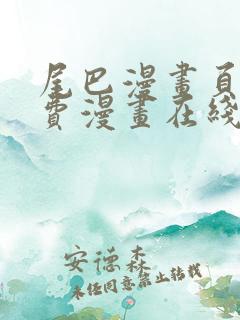 尾巴漫畫頁
費漫畫在綫
安德森
未經同意禁止轉載